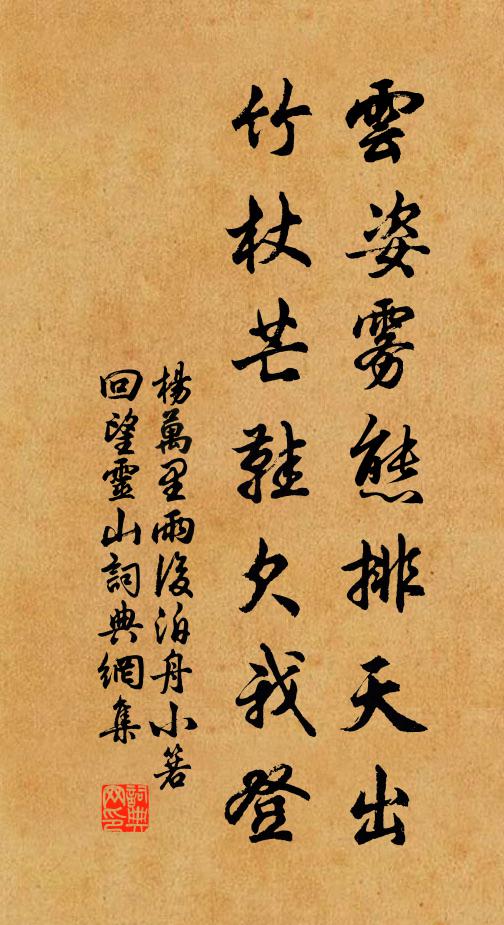 雲姿雾態排天出
竹杖芒鞋欠我登
楊萬里雨後泊舟小箬
回望靈山詞典網集
詞典网印